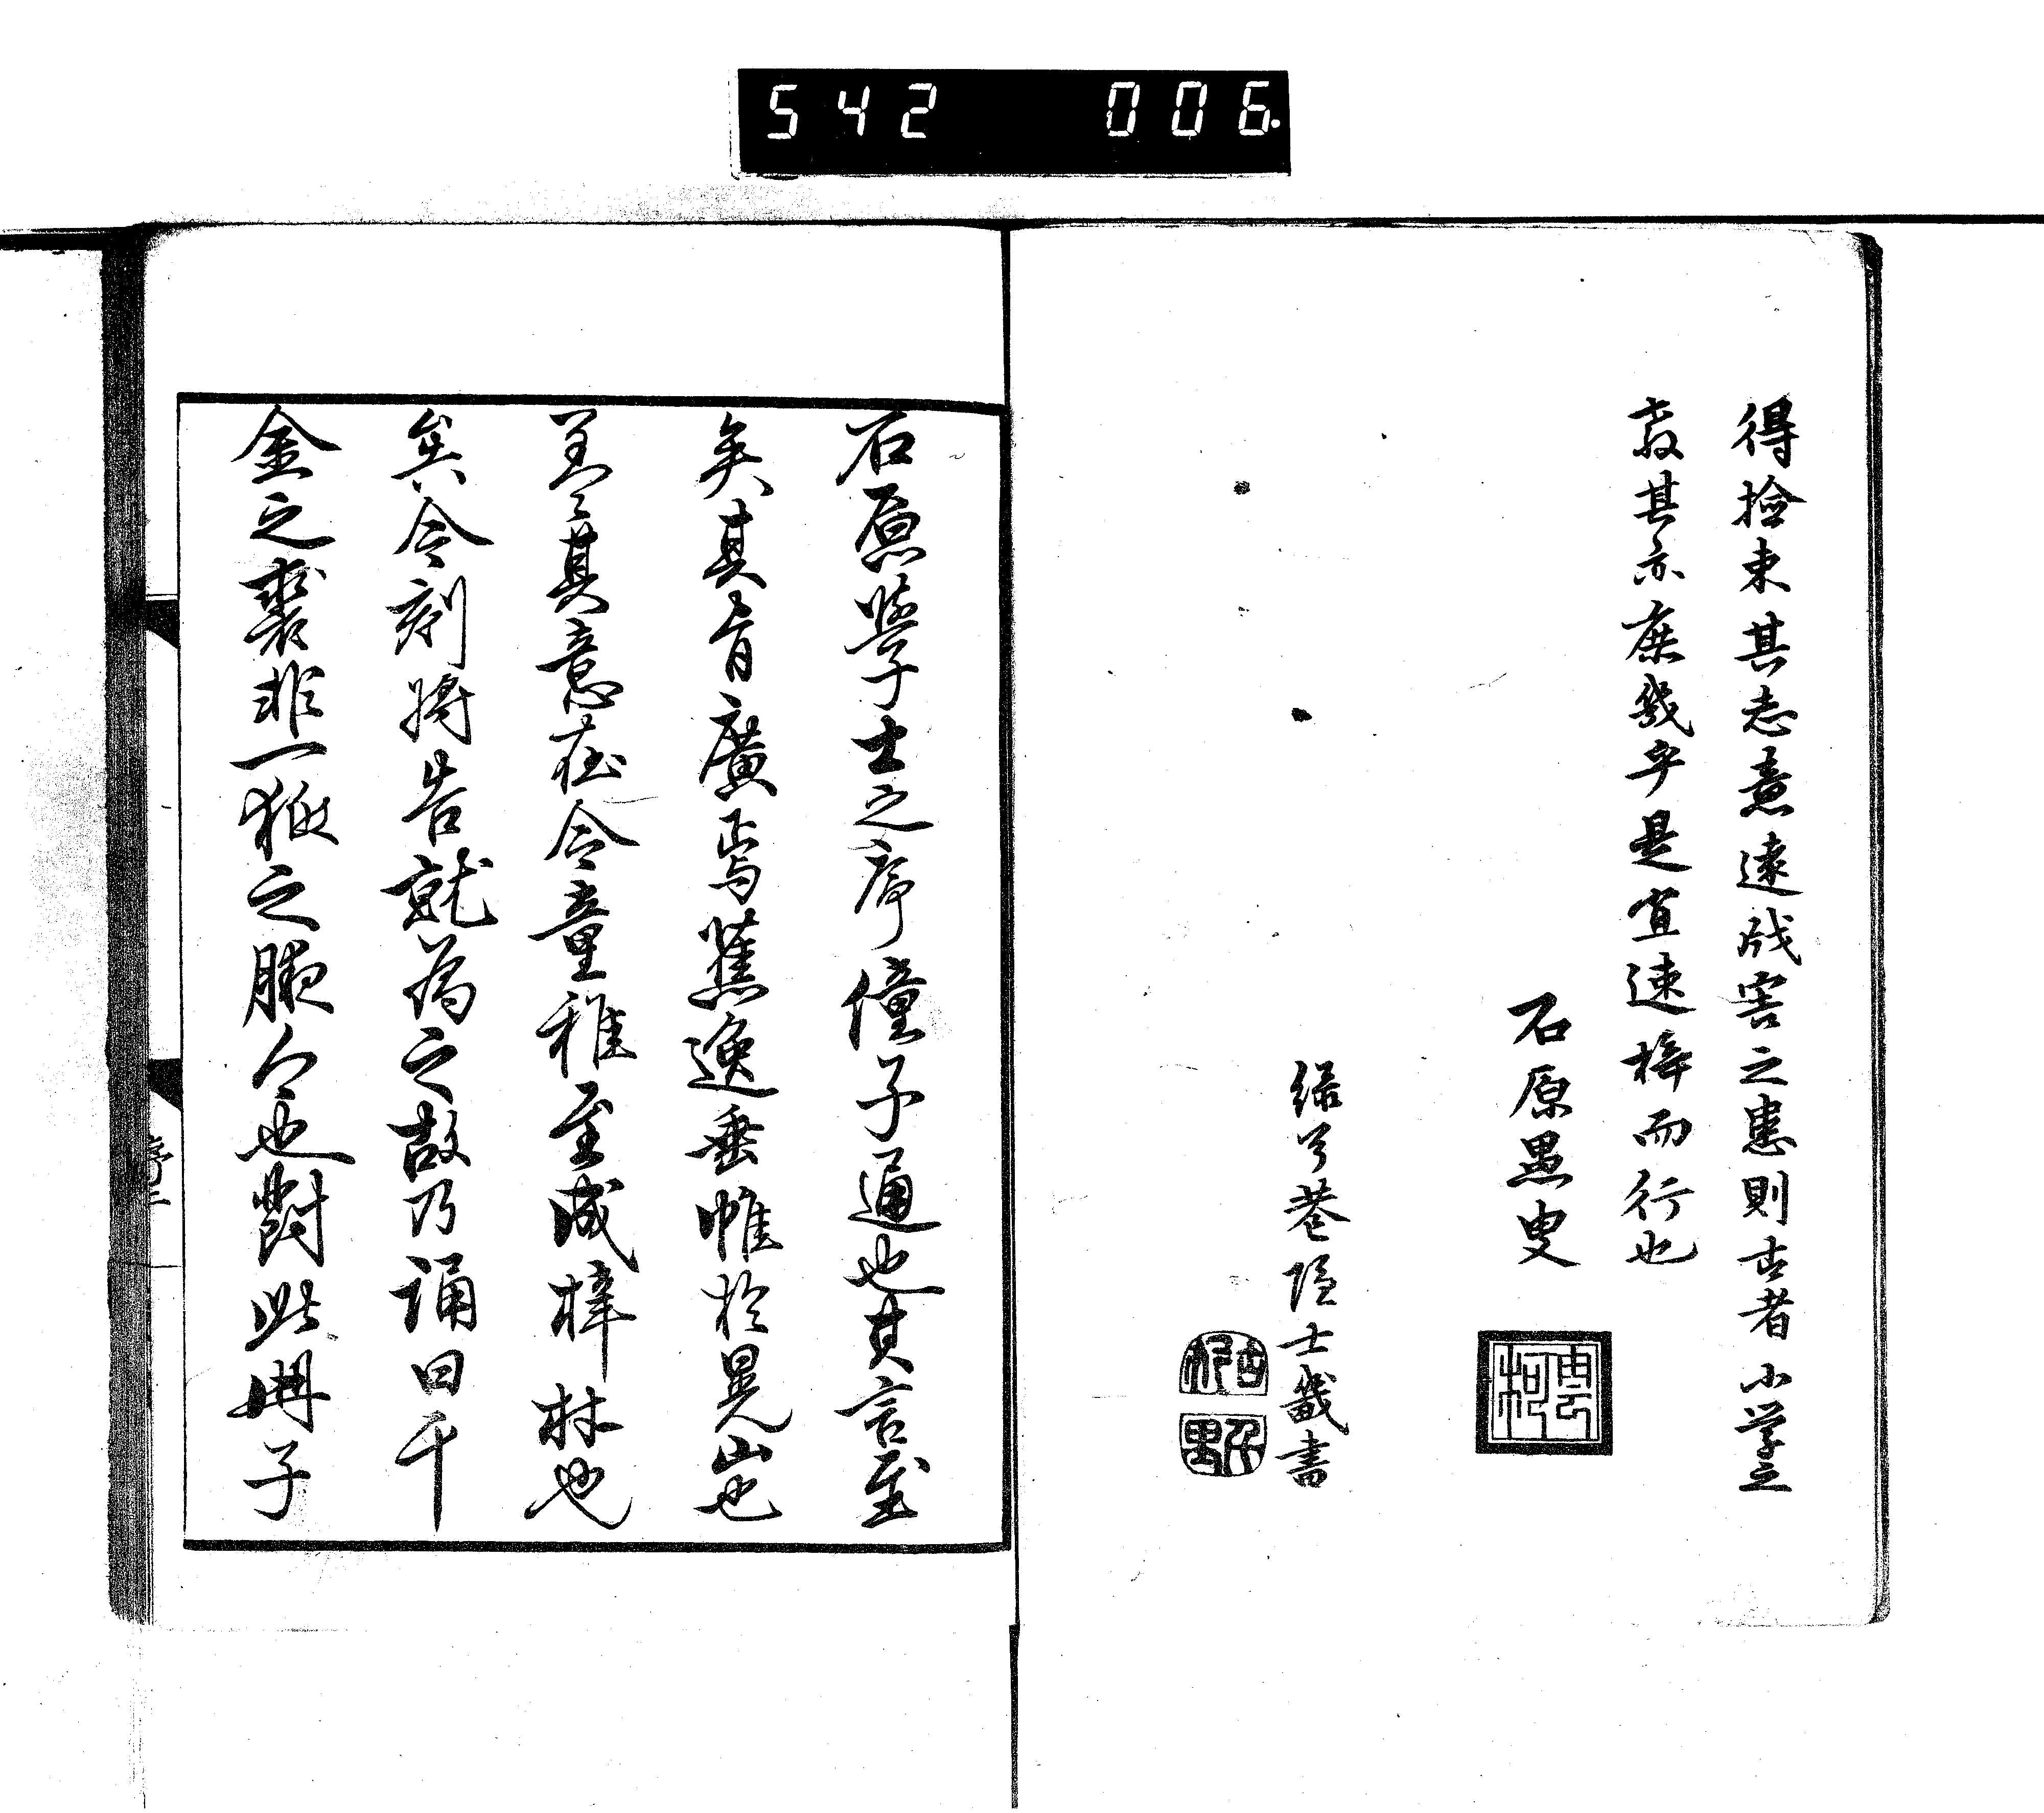 542 006.
得撿束其志意遠戕害之患則古者小学之
教其亦庶幾乎是宜速梓而行也
石原愚叟
緑兮巷隠士畿書
石原學士之序僮子通也其言至
矣其旨廣焉蕉逸垂帷於晃山也
其意在令童稚至成梓林也
矣今刻將告就為之故乃誦曰千
金之裘非一狐之腋今也對此冊子
序二